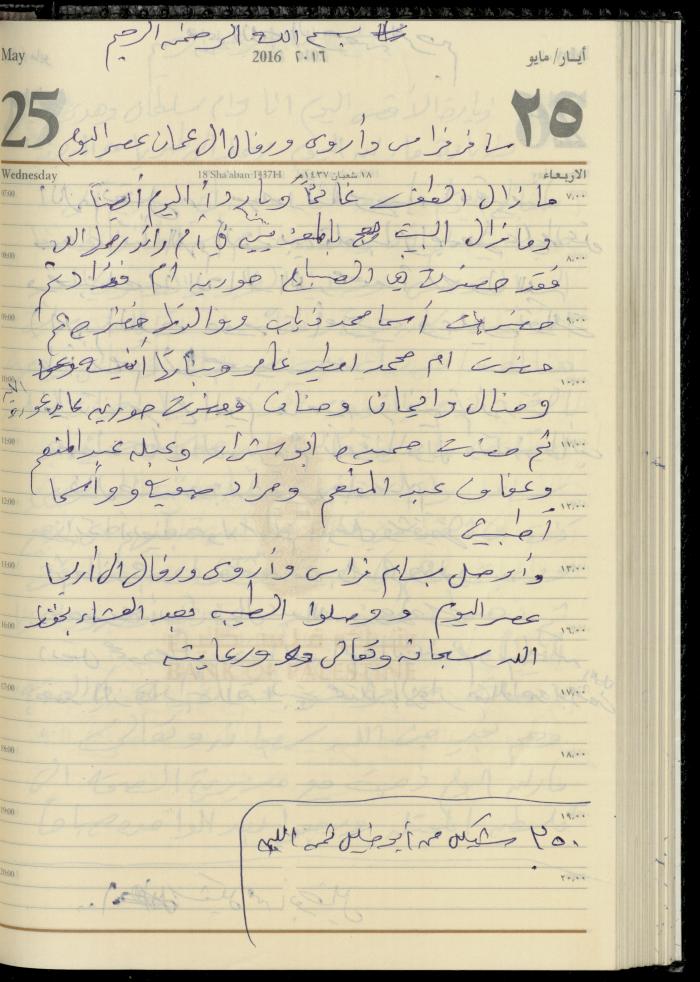 بسم الله الرحمن الرحيم
May
2016 ٢٠١٦
أيار/ مايو
25
٢٥
سافر فراس وأروى ورفال الى عمان عصر اليوم
Wednesday
18 Sha'aban 1437H ١٨ شعبان ١٤٣٧هـ
الاربعاء
ما زال الطقس غائماً وبارداً اليوم أيضاً
وما زال البيت بالمعزيين في أم رائد رحمها الله
فقد حضرت في الصباح حورية ام فؤاد ثم
حضرت أسما محمد ذياب ووالدتها ثم
حضرت ام محمد امطير عامر وبناتها أنيسه
ومنال وايمان وحنان وحضرت حوريه عايد
ثم حضرت حميده ابو شرار وعبله عبد المنعم
وعفاف عبد المنعم ومراد صفية وأسما
اطبيش
وأوصل بسام فراس وأروى ورفال الى أريحا
عصر اليوم ووصلوا الطيبه بعد العشاء بحفظ
الله سبحانه وتعالى ورعايته
BANK OF PALESTINE
٢٥٠ شيكل من أبو خليل ثمن
07:00 ٧,٠٠
08:00 ٨,٠٠
09:00 ٩,٠٠
10:00 ١٠,٠٠
11:00 ١١,٠٠
12:00 ١٢,٠٠
13:00 ١٣,٠٠
16:00 ١٦,٠٠
17:00 ١٧,٠٠
18:00 ١٨,٠٠
19:00 ١٩,٠٠
20:00 ٢٠,٠٠